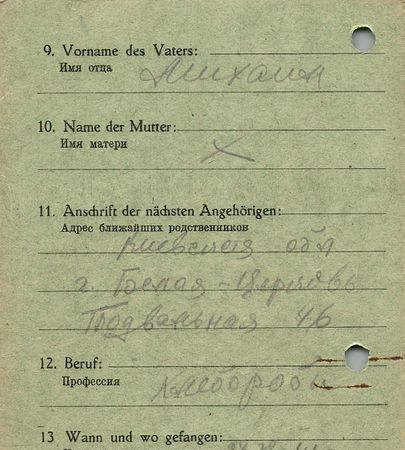 9. Vorname des Vaters:
Имя отца Михаил
10. Name der Mutter:
Имя матери X
11. Anschrift der nächsten Angehörigen:
Адрес ближайших родственников
Киевская обл
г. Белая-Церковь
Подвальная 46
12. Beruf:
Профессия хлебороб
13 Wann und wo gefangen: